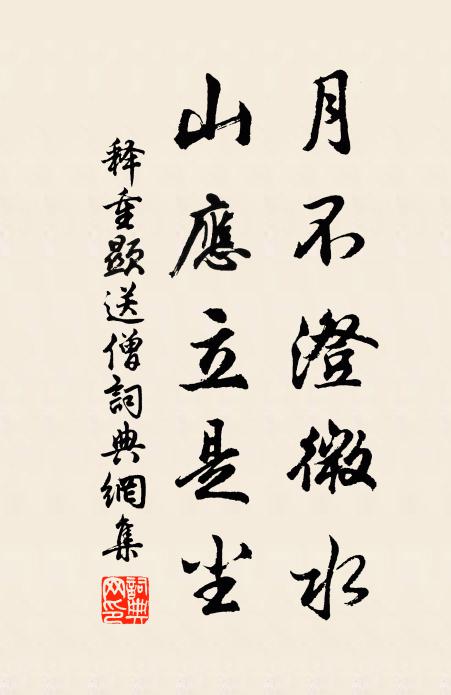 月不澄微水
山應立是尘
释重顯送僧詞典網集
詞典网印